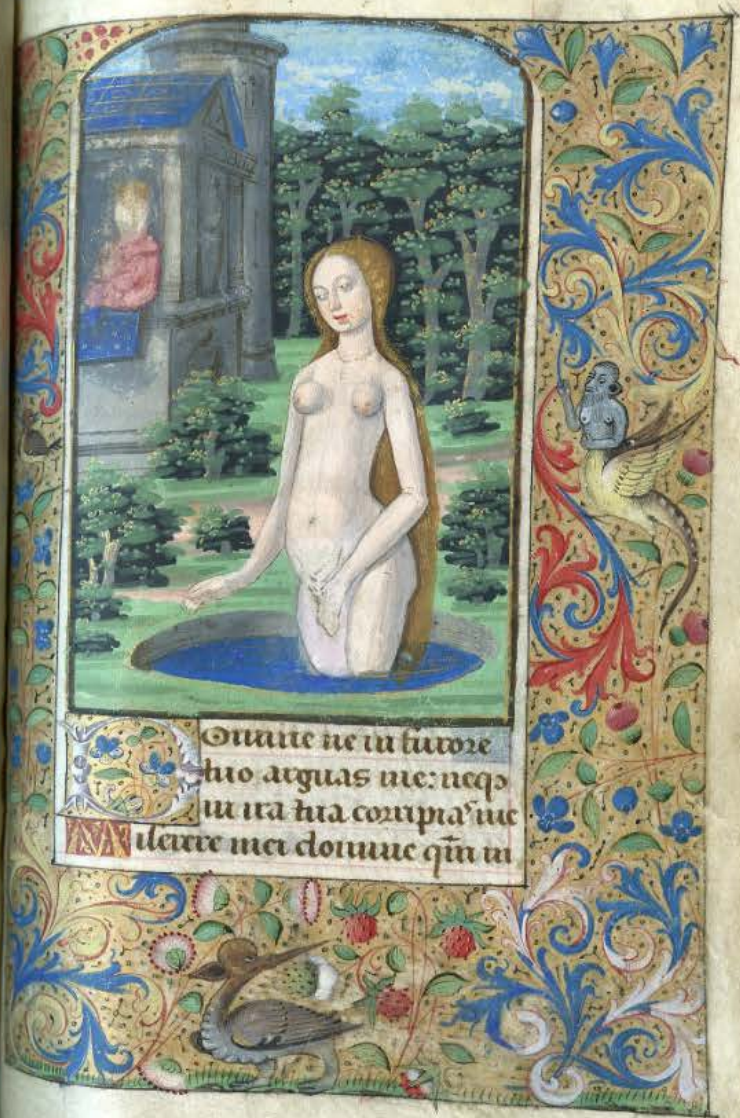 Domine ne in furore
tuo arguas me: neqꝫ
in ira tua corripias me
Miserere mei domine qm̄ in